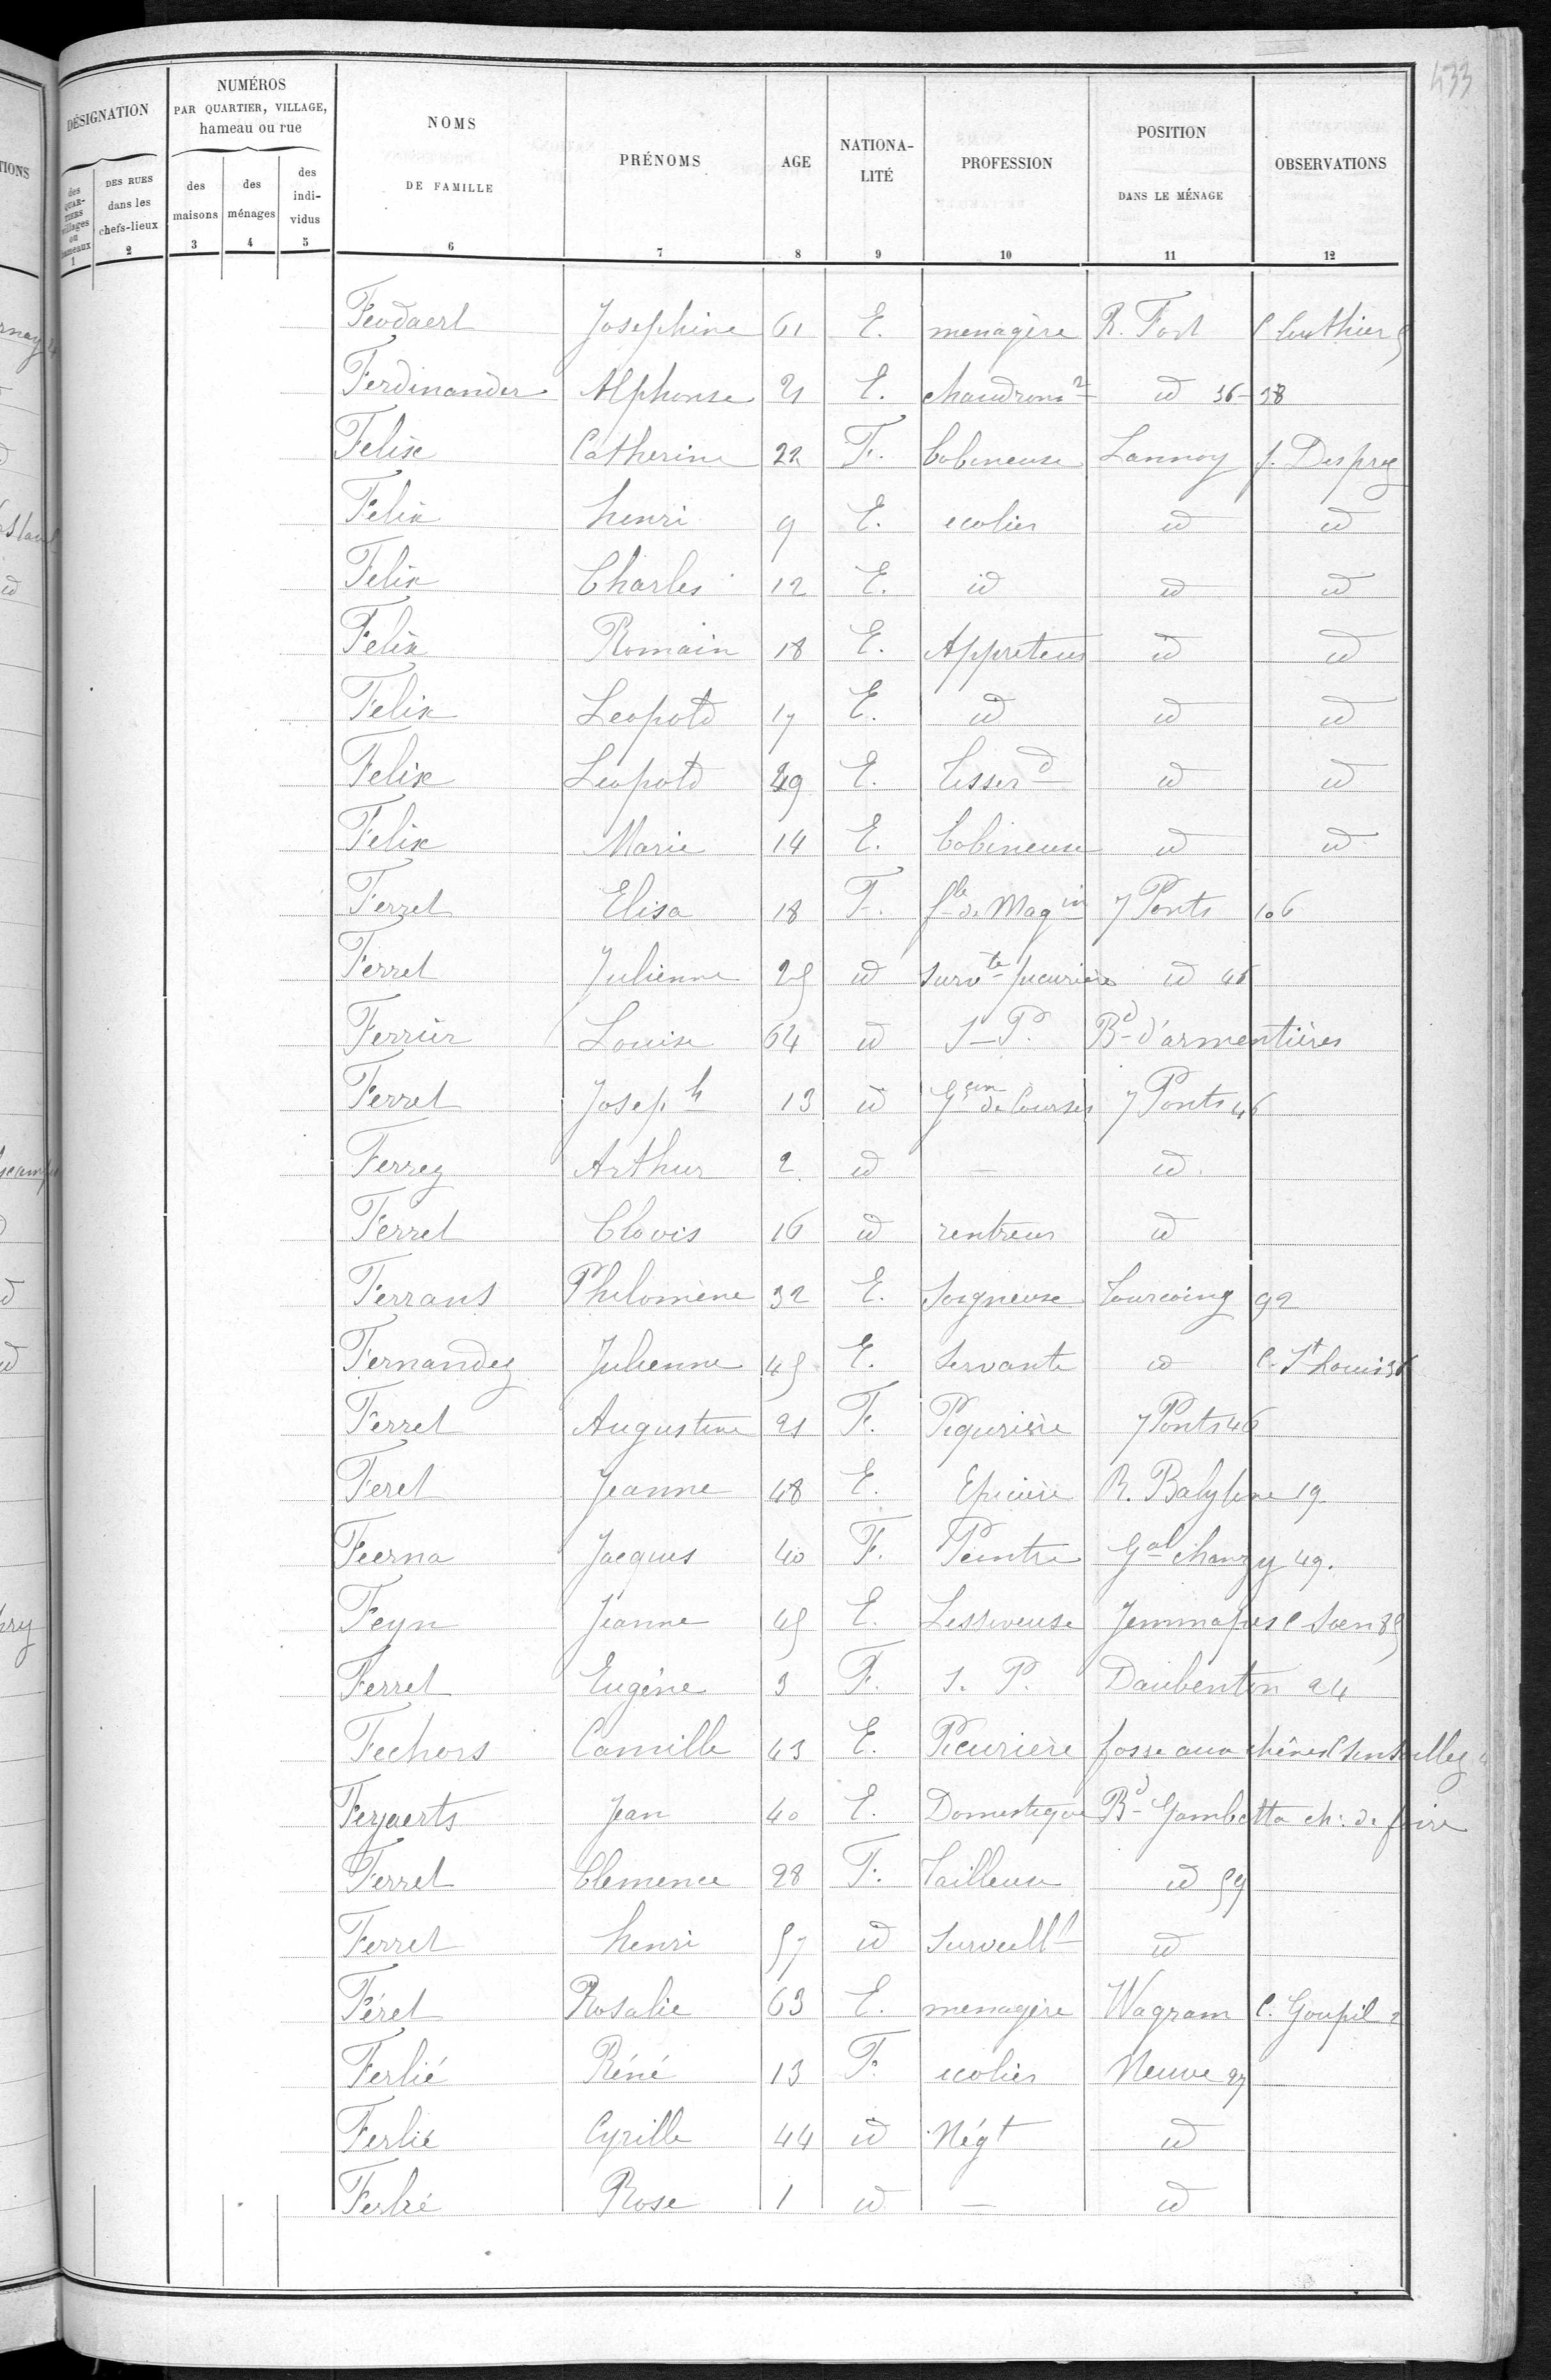 433
DÉSIGNATION
NUMÉROS
PAR QUARTIER, VILLAGE,
hameau ou rue
NOMS
DE FAMILLE
PRÉNOMS
AGE
NATIONA-
LITÉ
PROFESSION
POSITION
DANS LE MÉNAGE
OBSERVATIONS
des QUAR-TIERS villages ou hameaux
DES RUES dans les chefs-lieux
des maisons
des ménages
des indi-vidus
1 2 3 4 5 6 7 8 9 10 11 12
Feodaert Josephine 61 E. menagère R. Fort
Ferdinander Alphonse 21 E. chaudronr id 36-38
Felix Catherine 22 F. bobineuse Lannoy f. Desprez
Felix henri 9 E. ecolier id id
Felix Charles 12 E. id id id
Felix Romain 18 E. Appreteur id id
Felix Leopold 17 E. id id id
Felix Leopold 49 E. tisserd id id
Felix Marie 14 E. bobineuse id id
Ferret Elisa 18 F. flle de Magin 7 Ponts 106
Ferret Julienne 25 id survte picurière id 46
Ferrier Louise 64 id S P. Bd d'armentières
Ferret Joseph 13 id Gçon de Courses 7 Ponts 46
Ferrez Arthur 2 id — id.
Ferret Clovis 16 id rentreur id
Ferrans Philomène 32 E. Soigneuse Tourcoing 92
Fernandez Julienne 45 E. Servante id C. St Louis 36
Ferret Augustine 21 F. Piqurière 7 Ponts 46
Feret Jeanne 48 E. Epicière R. Babylone 19
Feerna Jacques 40 F. Peintre Gal chanzy 49.
Feyn Jeanne 45 E. Lessiveuse Jemmapes C Soen 85
Ferret Eugène 3 F. S. P. Daubenton 24
Fechers Camille 43 E. Picurière fosse aux chênes
Feyaerts Jean 40 E. Domestique Bd Gambetta ch. de foire
Ferret Clemence 28 F. Tailleuse id 59
Ferret henri 57 id Surveillt id
Féret Rosalie 63 E. menagère Wagram C. Goupil 2
Ferlié Réné 13 F. ecolier Neuve 27
Ferlié Cyrille 44 id Négt id
Ferlié Rose 1 id — id